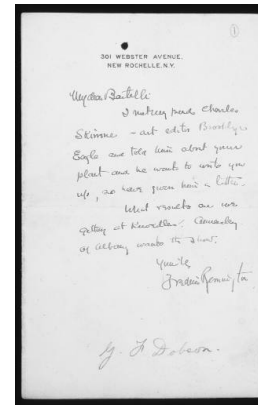 ①
301 WEBSTER AVENUE.
NEW ROCHELLE, N.Y.
My dear Bartelli
I Charles
Skinner - art editor Brooklyn
Eagle and told him about your
plant and he wants to write you
up, so have given him a letter.
What results are we
getting at Knoedler.
of Albany wants to
Yours
Frederic Remington
G. F. Dobson.